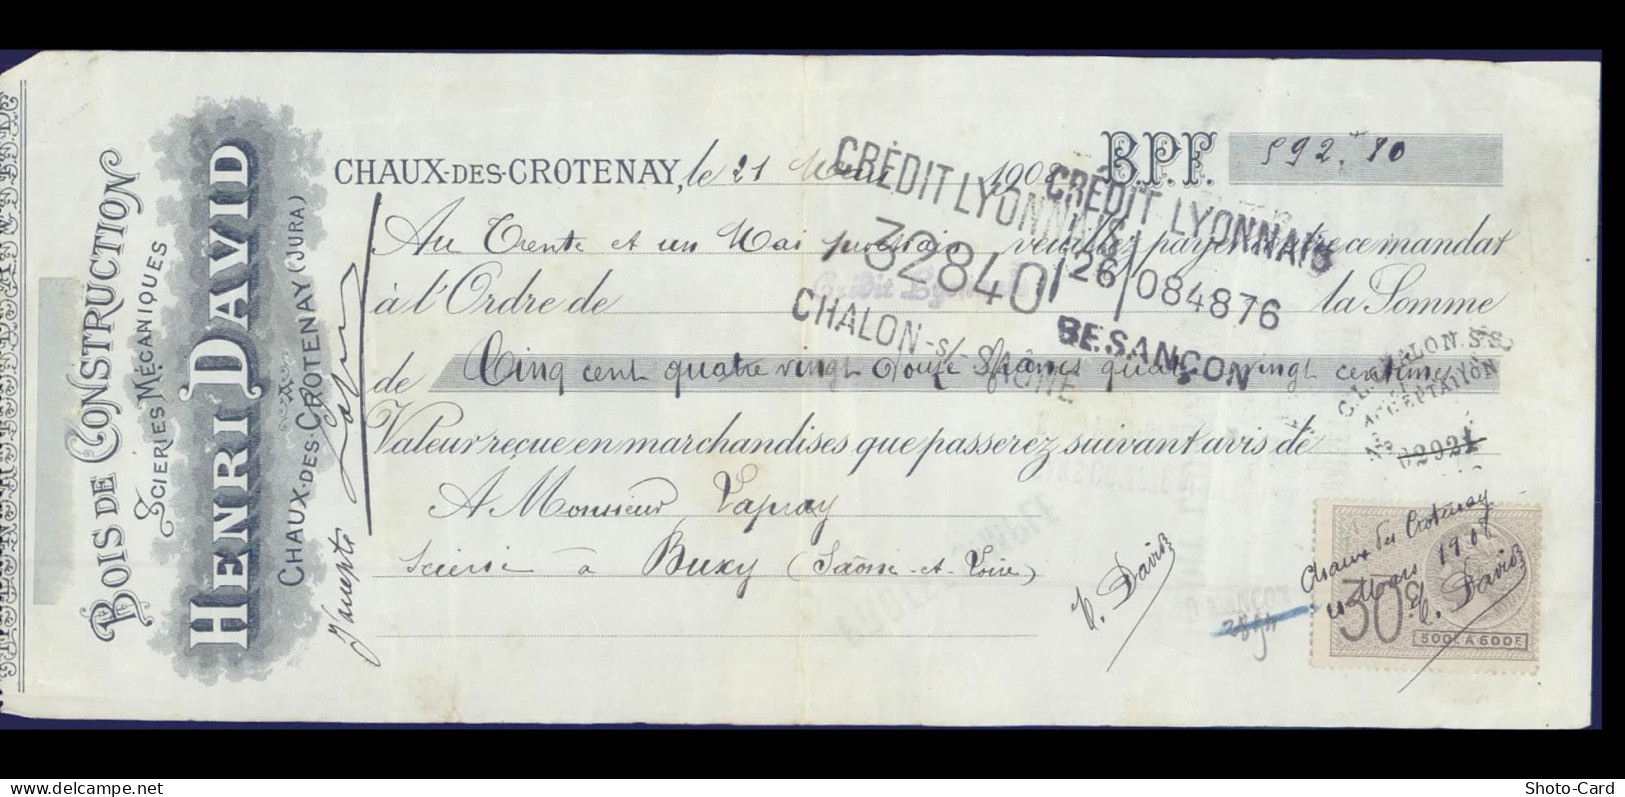 BOIS DE CONSTRUCTION
SCIERIES MÉCANIQUES
HENRI DAVID
CHAUX-DES-CROTENAY (JURA)
CHAUX-DES-CROTENAY, le 21 Mars 1908 B.P.F. 592.80
Au Trente et un Mai prochain veuillez payer contre ce mandat
à l'Ordre de Crédit Lyonnais la Somme
de Cinq cent quatre vingt douze francs quatre vingt centimes
Valeur reçue en marchandises que passerez suivant avis de
A Monsieur Lapray
Scierie à Buxy (Saône-et-Loire)
H. David
Accepté
Lapray
CRÉDIT LYONNAIS
32840
CHALON-s/-SAÔNE
CRÉDIT LYONNAIS
26/084876
BESANÇON
C.L. CHALON S/S
ACCEPTATION
No 02921
Chaux des Crotenay
21 Mars 1908
H. David
30c
500F. A 600F.
Shoto-Card